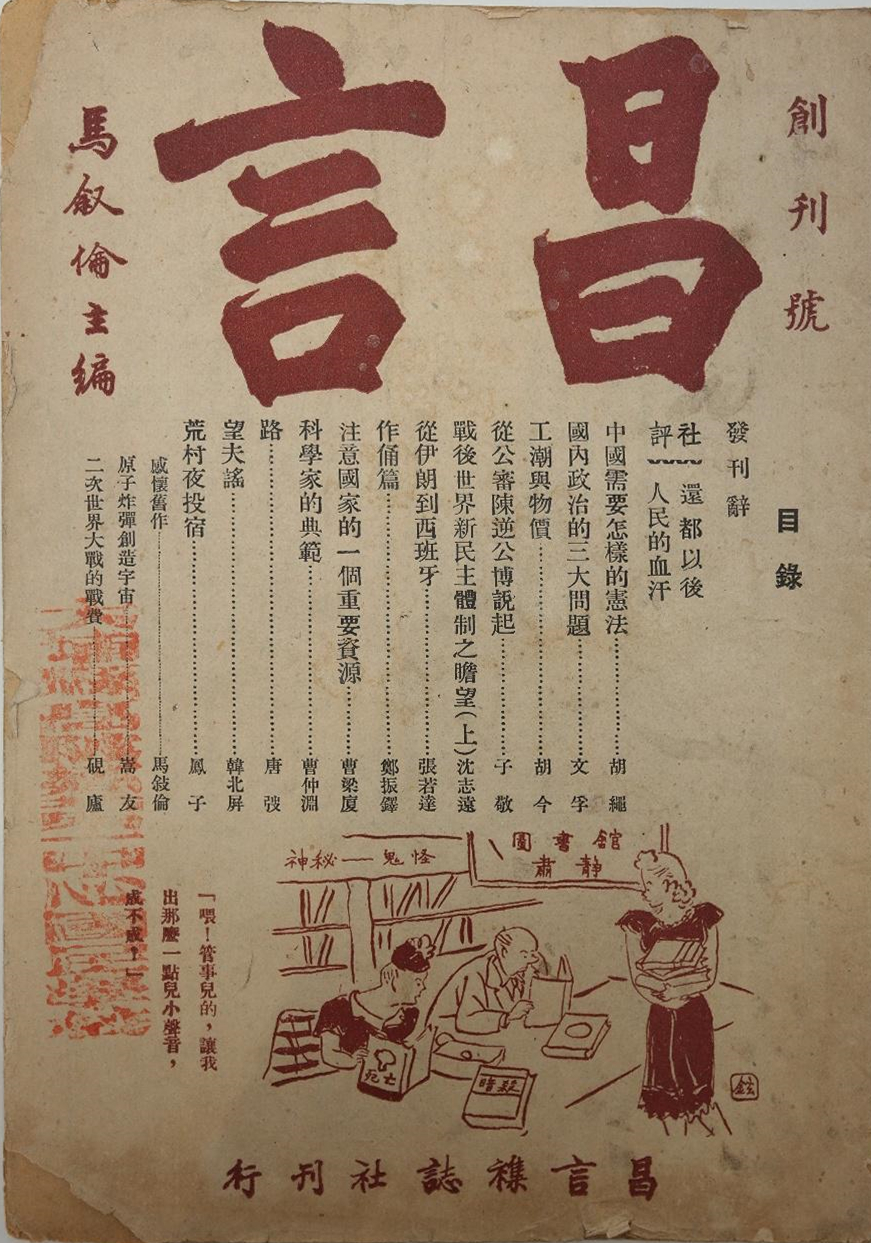 創刊號
昌言
馬叙倫主編
目錄
發刊辭
社評
還都以後
人民的血汗
中國需要怎樣的憲法……胡繩
國內政治的三大問題……文孚
工潮與物價……胡今
從公審陳逆公博説起……子敬
戰後世界新民主體制之瞻望(上)沈志遠
從伊朗到西班牙……張若達
作俑篇……鄭振鐸
注意國家的一個重要資源……曹梁廈
科學家的典範……曹仲淵
路……唐弢
望夫謠……韓北屏
荒村夜投宿……鳳子
感懷舊作……馬敍倫
原子炸彈創造宇宙……嵩友
二次世界大戰的戰費……硯廬
圖書館
肅靜
神秘—鬼怪
死亡
暗殺
鉉
「喂!管事兒的,讓我
出那麼一點兒小聲音,
成不成?」
昌言襍誌社刊行